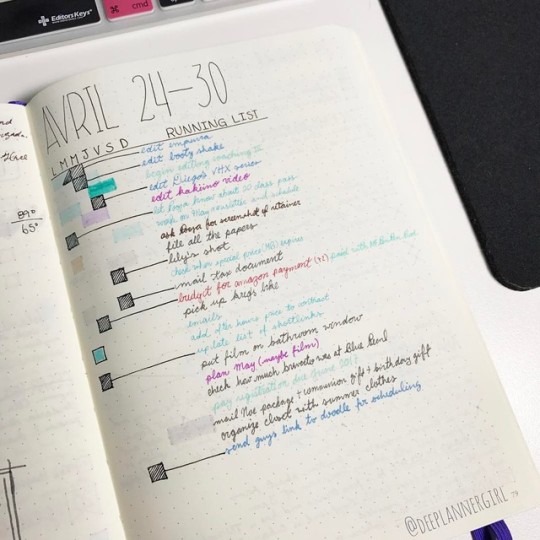 EditorsKeys
cmd
AVRIL 24-30
L M M J V S D
RUNNING LIST
edit
edit booty shake
begin editing coaching II
edit Diego's VHX series
edit hakimo video
know about 30 class pass
work on May newsletter and schedule
ask for screenshot of retainer
file all the papers
lily's shot
check when special price expires
mail tax document
budget for amazon payment (x2) paid with
pick up bike
emails
add after hours price to contract
update list of shortlinks
put film on bathroom window
plan May (maybe film)
check how much was at Blue Pearl
pay registration due June 2017
mail package + communion gift + birthday gift
organize closet with summer clothes
send guys link to doodle for scheduling
89°
65°
@DEEPLANNERGIRL